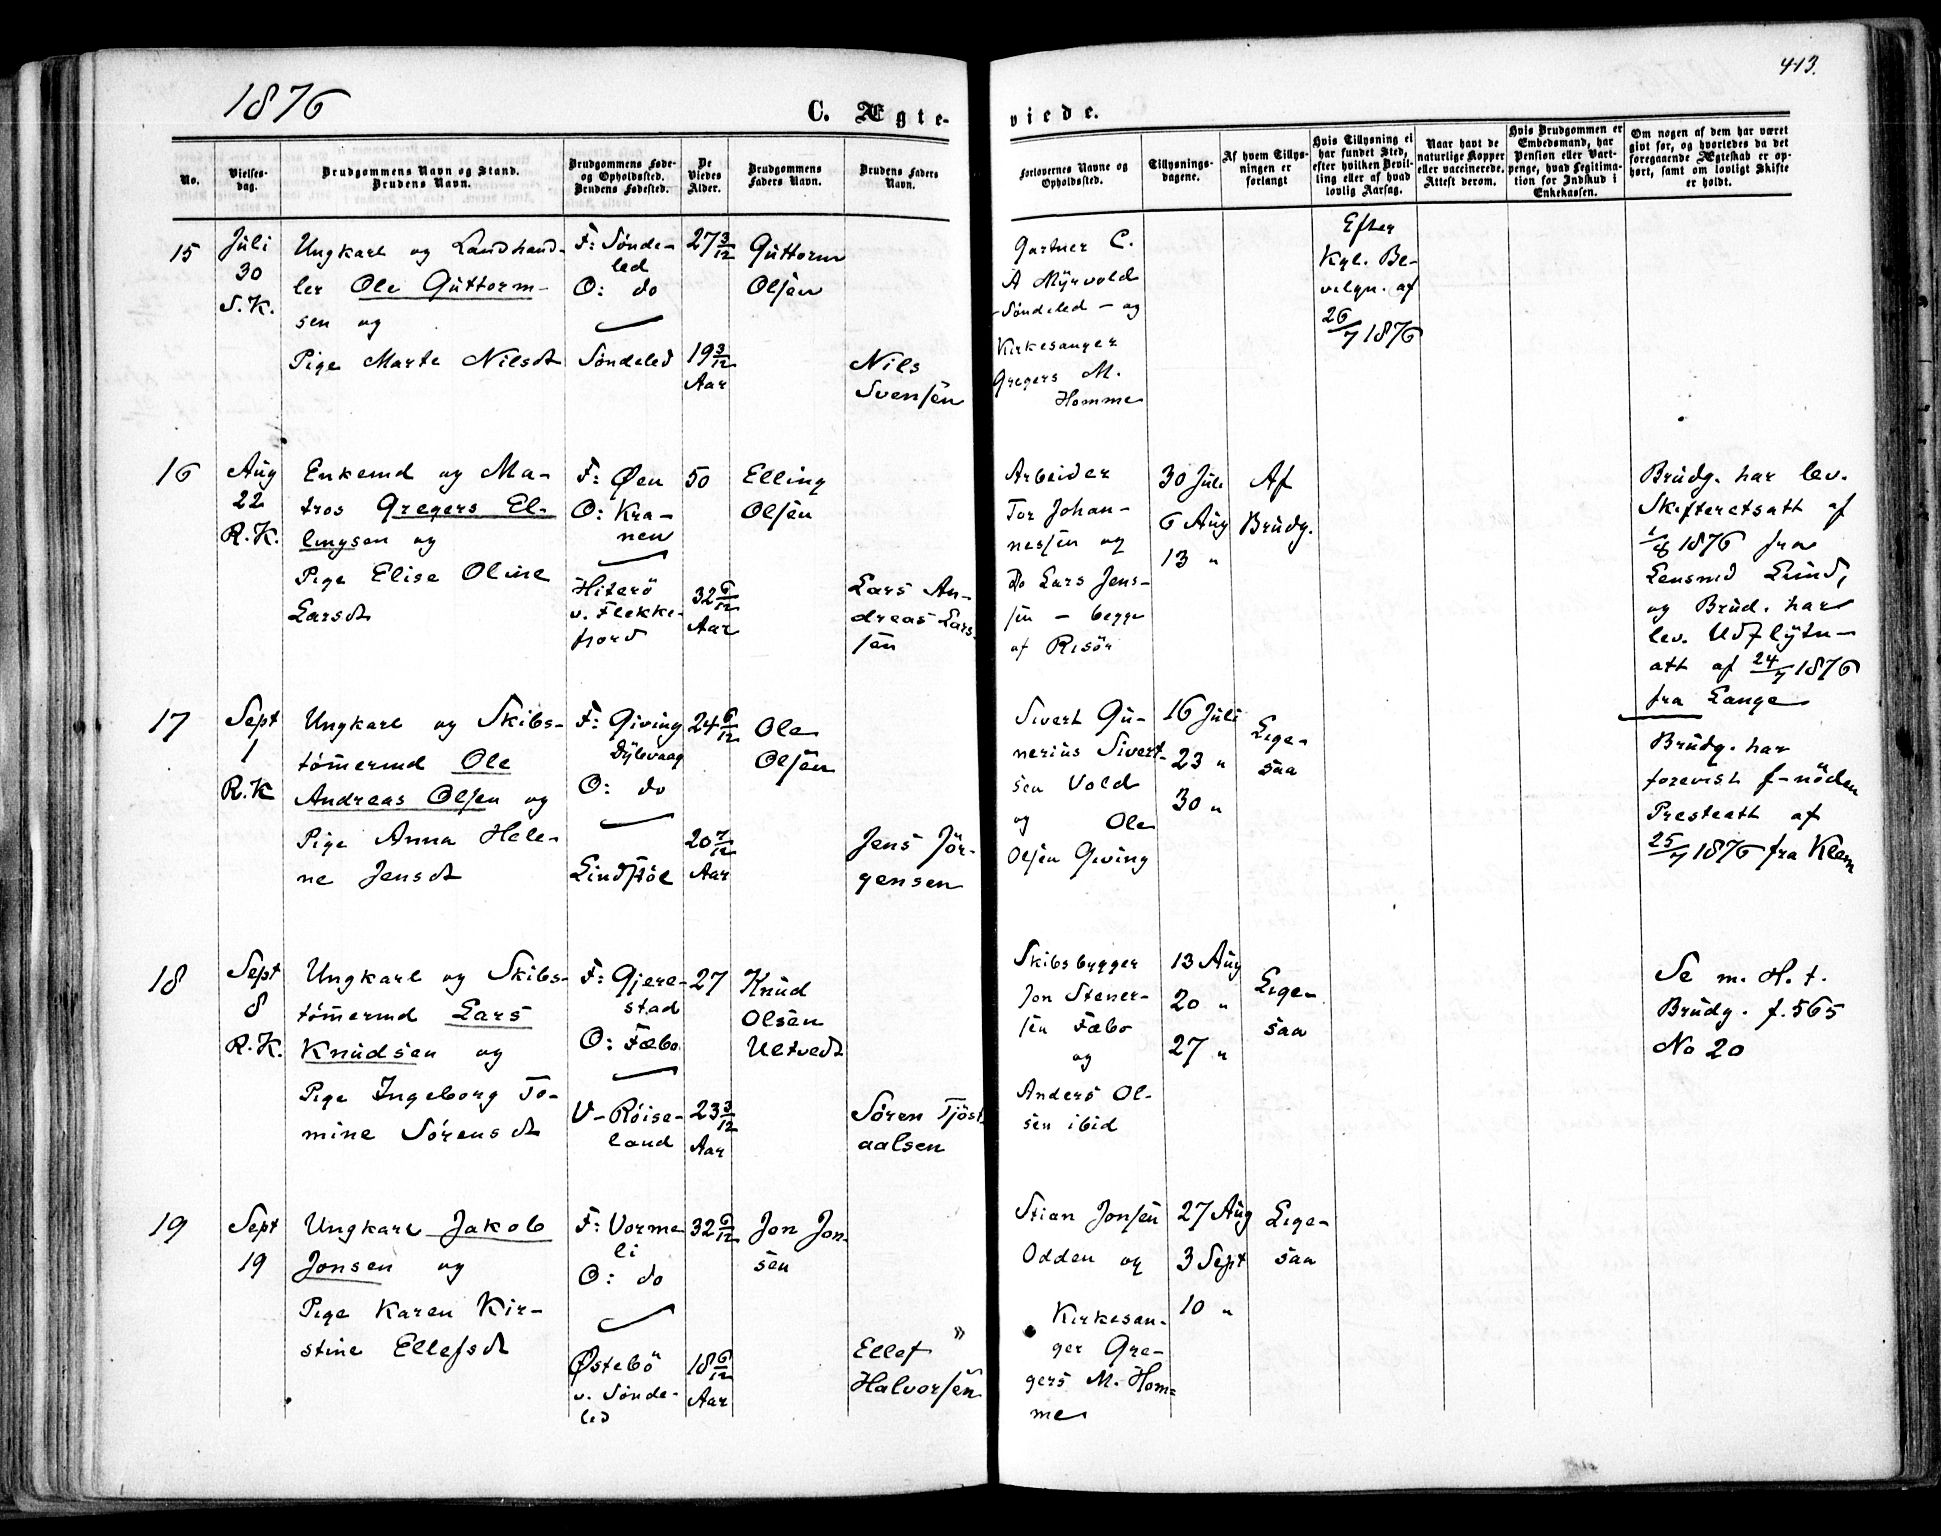 1876
413.
C. Ægte-
viede.
No.
Vielses-
dag.
Brudgommens Navn og Stand.
Brudens Navn.
Brudgommens Føde-
og Opholdssted.
Brudens Fødested.
De
Viedes
Alder.
Brudgommens
Faders Navn.
Brudens Faders
Navn.
Forlovernes Navne og
Opholdssted.
Tillysnings-
dagene.
Af hvem Tillys-
ningen er
forlangt
Hvis Tillysning ei
har fundet Sted,
efter hvilken Bevil-
ling eller af hvad
lovlig Aarsag.
Naar havt de
naturlige Kopper
eller vaccinerede.
Attest derom.
Hvis Brudgommen er
Embedsmand, har
Pension eller Vart-
penge, hvad Legitima-
tion for Indskud i
Enkekassen.
Om nogen af dem har været
givt før, og hvorledes da det
foregaaende Ægteskab er op-
hørt, samt om lovligt Skifte
er holdt.
15
Juli
30
S.K.
Ungkarl og Landhand-
ler Ole Guttorm-
sen og
Pige Marte Nilsdt
F: Sønde-
led
O: do
Søndeled
27 3/12
19 3/12
Aar
Guttorm
Olsen
Nils
Svensen
Gartner C.
A Myrvold
Søndeled - og
Kirkesanger
Gregers M.
Homme
Efter
Kgl. Be-
vilgn. af
26/7 1876
16
Aug
22
R.K.
Enkemd og Ma-
tros Gregers El-
lingsen og
Pige Elise Oline
Larsdt
F: Øen
O: Kra-
nen
Hiterö
v. Flekke-
fjord
50
32 6/12
Aar
Elling
Olsen
Lars An-
dreas Lars-
sen
Arbeider
Tor Johan-
nessen og
Do Lars Jens-
sen - begge
af Risör
30 Juli
6 Aug
13 "
Af
Brudg.
Brudg. har lev.
Skifteretsatt af
1/8 1876 fra
Lensmd Lund,
og Brud. har
lev. Udflytn-
att af 24/7 1876
fra Lange
17
Sept
1
R.K
Ungkarl og Skibs-
tømermd Ole
Andreas Olsen og
Pige Anna Hele-
ne Jensdt
F: Giving
Dybvaag
O: do
Lindstøl
24 6/12
20 7/12
Aar
Ole
Olsen
Jens Jör-
gensen
Sivert Gu-
nerius Sivert-
sen Vold
og Ole
Olsen Giving
16 Juli
23 "
30 "
Lige-
saa
Brudg. har
forevist f-nöden
Presteatt af
25/7 1876 fra Klem
18
Sept
8
R.K.
Ungkarl og Skibs-
tømermd Lars
Knudsen og
Pige Ingeborg To-
mine Sørensdt
F: Gjere-
stad
O: Fæbo
V- Röise-
land
27
23 3/12
Aar
Knud
Olsen
Ueltvedt
Søren Tjöst-
aalsen
Skibsbygger
Jon Stener-
sen Fæbo
og
Anders Ol-
sen ibid
13 Aug
20 "
27 "
Lige-
saa
Se m. H. t.
Brudg. f. 565
No 20
19
Sept
19
Ungkarl Jakob
Jonsen og
Pige Karen Kir-
stine Ellefsdt
F: Vorme
li
O: do
Østebö
v. Sønde-
led
32 6/12
18 6/12
Aar
Jon Jon-
sen
Ellef "
Halvorsen
Stian Jonsen
Odden og
Kirkesan-
ger Gre-
gers M. Hom-
me
27 Aug
3 Sept
10 "
Lige-
saa